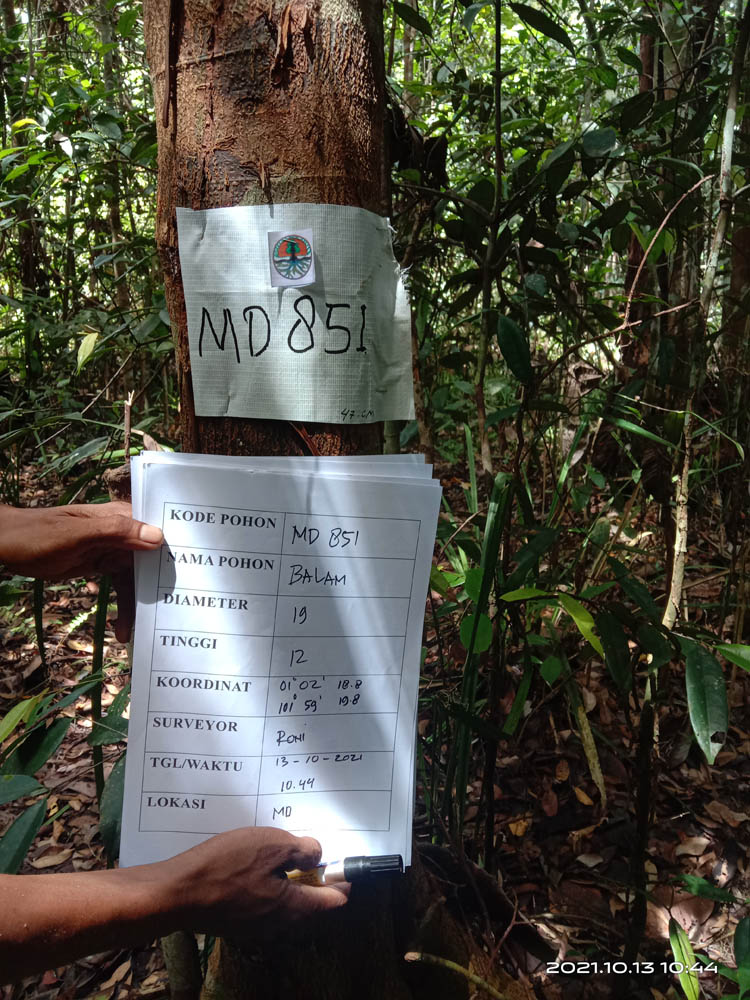 MD 851
47 CM
KODE POHON MD 851
NAMA POHON BALAM
DIAMETER 19
TINGGI 12
KOORDINAT 01° 02' 18.8
101° 59' 19.8
SURVEYOR ROMI
TGL/WAKTU 13-10-2021
10.44
LOKASI MD
2021.10.13 10:44